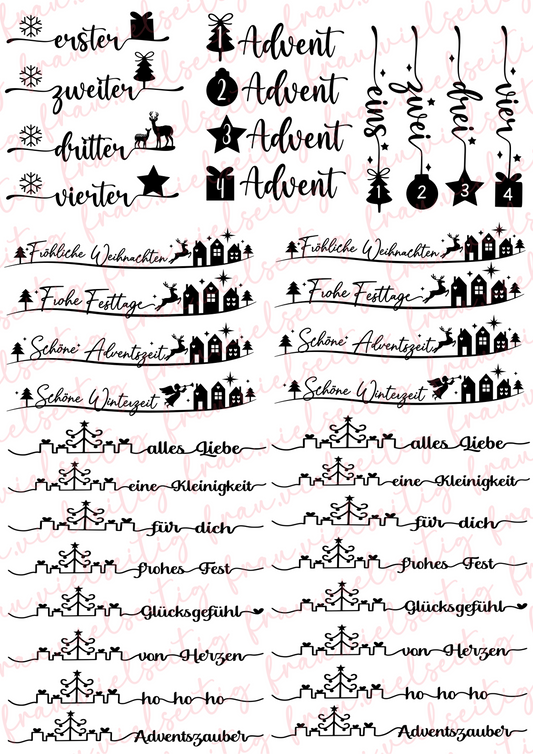 erster
zweiter
dritter
vierter
1 Advent
2 Advent
3 Advent
4 Advent
eins
zwei
drei
vier
1
2
3
4
Fröhliche Weihnachten
Frohe Festtage
Schöne Adventszeit
Schöne Winterzeit
Fröhliche Weihnachten
Frohe Festtage
Schöne Adventszeit
Schöne Winterzeit
alles Liebe
eine Kleinigkeit
für dich
frohes Fest
Glücksgefühl
von Herzen
ho ho ho
Adventszauber
alles Liebe
eine Kleinigkeit
für dich
frohes Fest
Glücksgefühl
von Herzen
ho ho ho
Adventszauber
frau.vielseitig